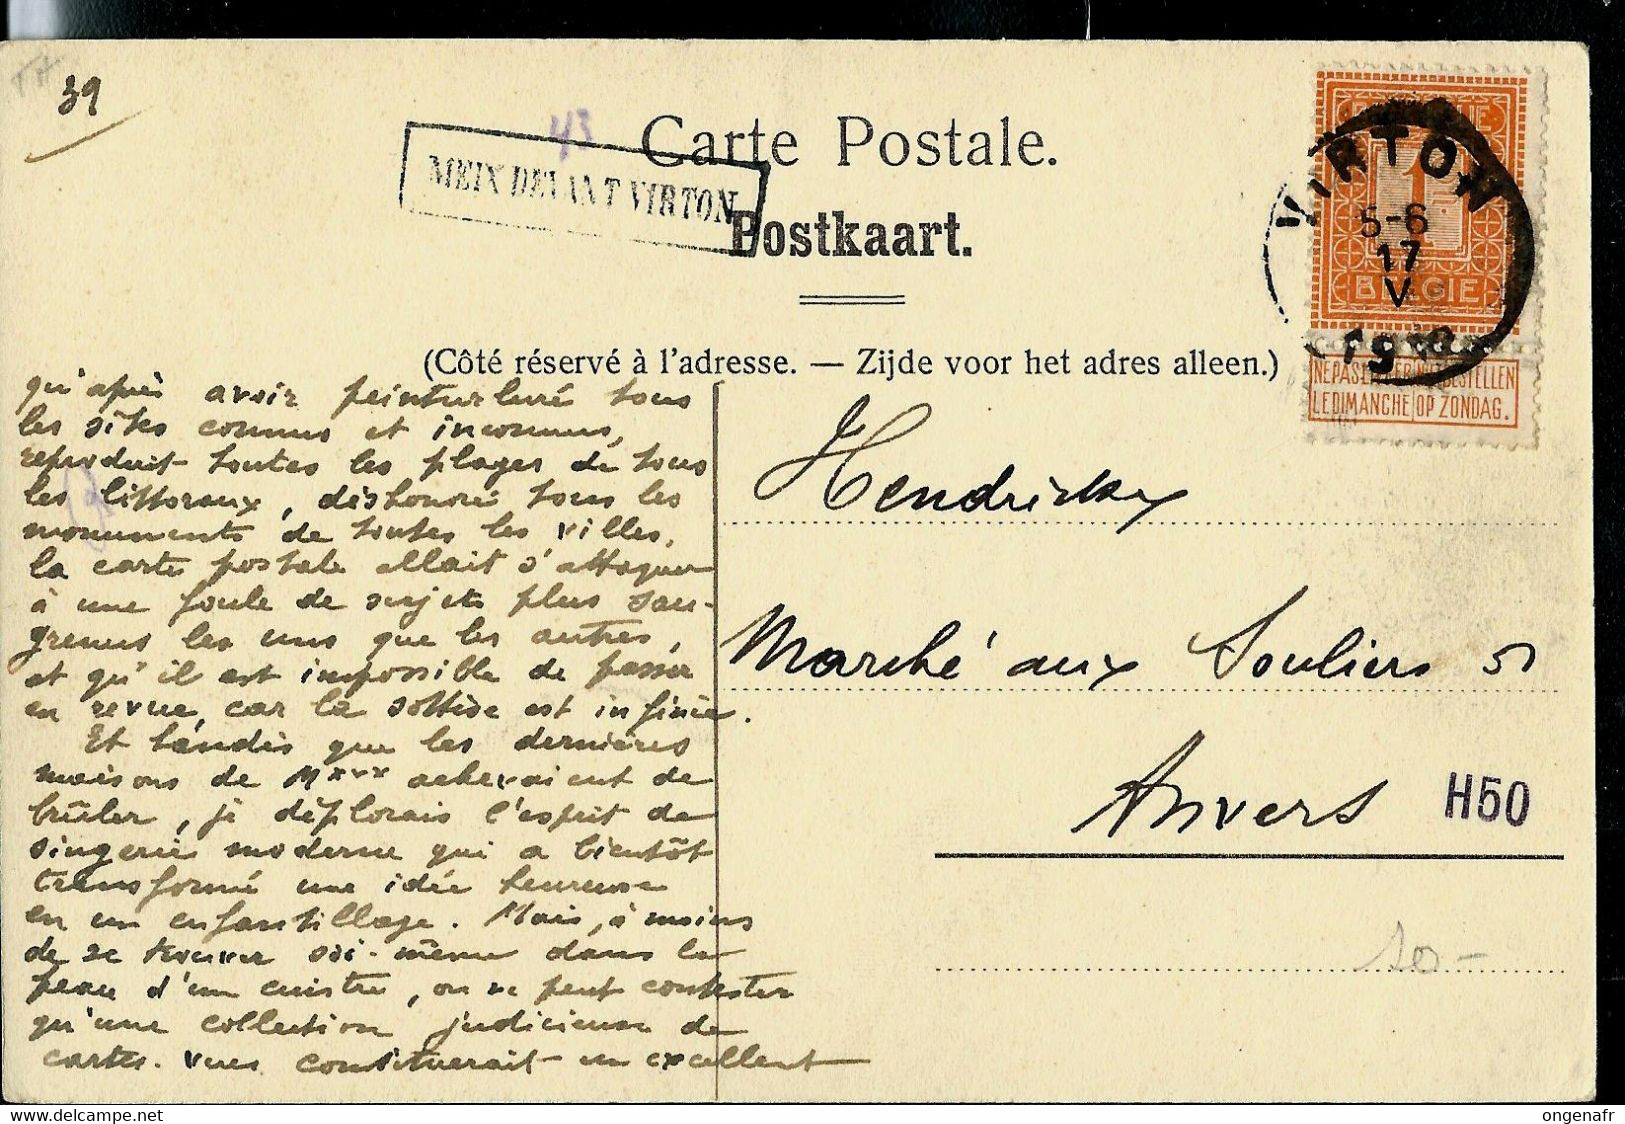 39
43
Carte Postale.
MEIX DEVANT VIRTON
Postkaart.
(Côté réservé à l'adresse. — Zijde voor het adres alleen.)
VIRTON
5-6
17
V
19
1
BELGIE
NE PAS LIVRER NIET BESTELLEN
LE DIMANCHE OP ZONDAG.
qu'après avoir peinturluré tous
les sites connus et inconnus,
reproduit toutes les plages de tous
les littoraux, déshonoré tous les
monuments de toutes les villes,
la carte postale allait s'attaquer
à une foule de sujets plus sau-
grenus les uns que les autres,
et qu'il est impossible de passer
en revue, car la sottise est infinie.
Et tandis que les dernières
maisons de Mxxx achevaient de
brûler, je déplorais l'esprit de
singerie moderne qui a bientôt
transformé une idée heureuse
en un enfantillage. Mais, à moins
de se trouver soi-même dans la
peau d'un cuistre, on ne peut contester
qu'une collection judicieuse de
cartes-vues constituerait un excellent
Hendrickx
Marché aux Souliers 51
Anvers
H50
20-
delcampe.net
ongenafr